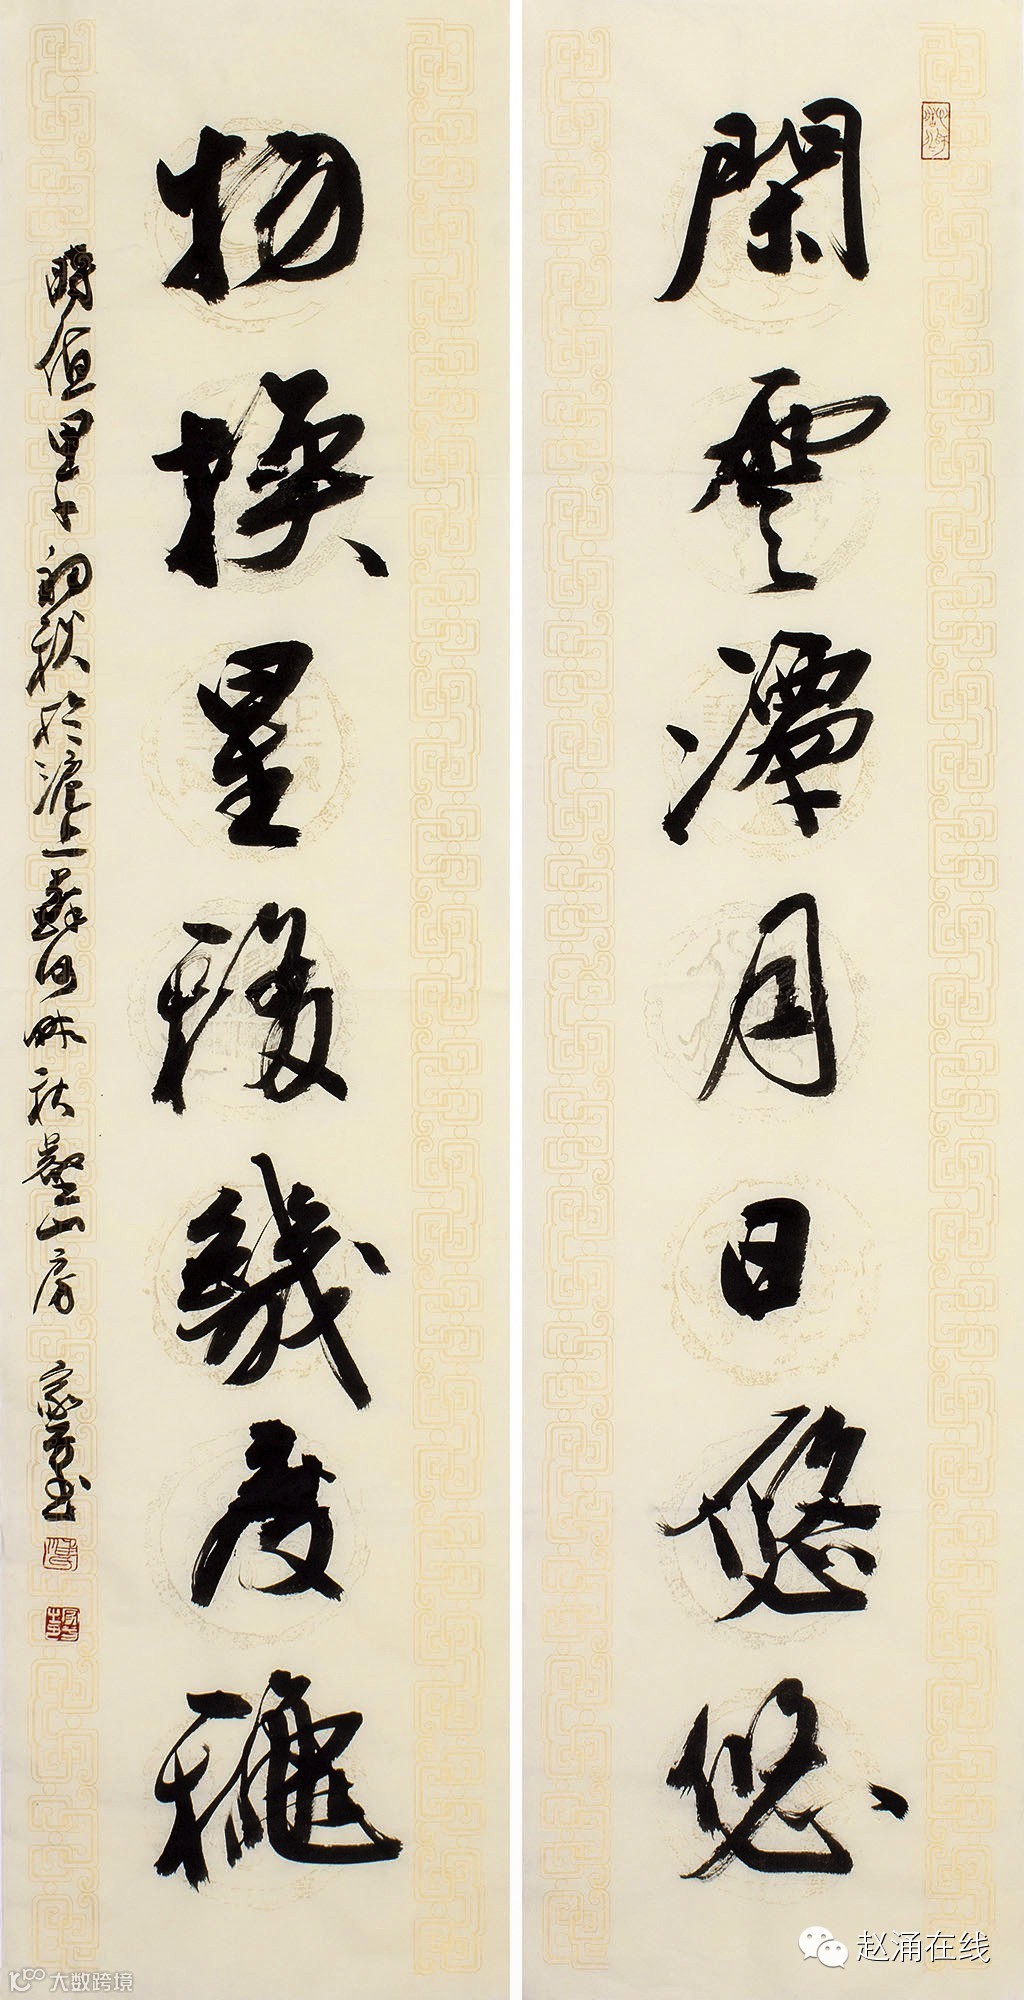 閑雲潭月日悠悠
物換星移幾度穐
時值甲午初秋於滬上蘇河畔秋山房 家芳書
赵涌在线
大数跨境